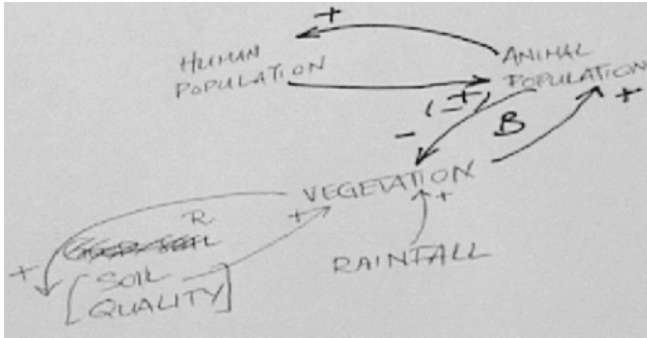 +
HUMAN
POPULATION
ANIMAL
POPULATION
+
(-+)
-
B
VEGETATION
+
R
+
+
[SOIL
QUALITY]
RAINFALL